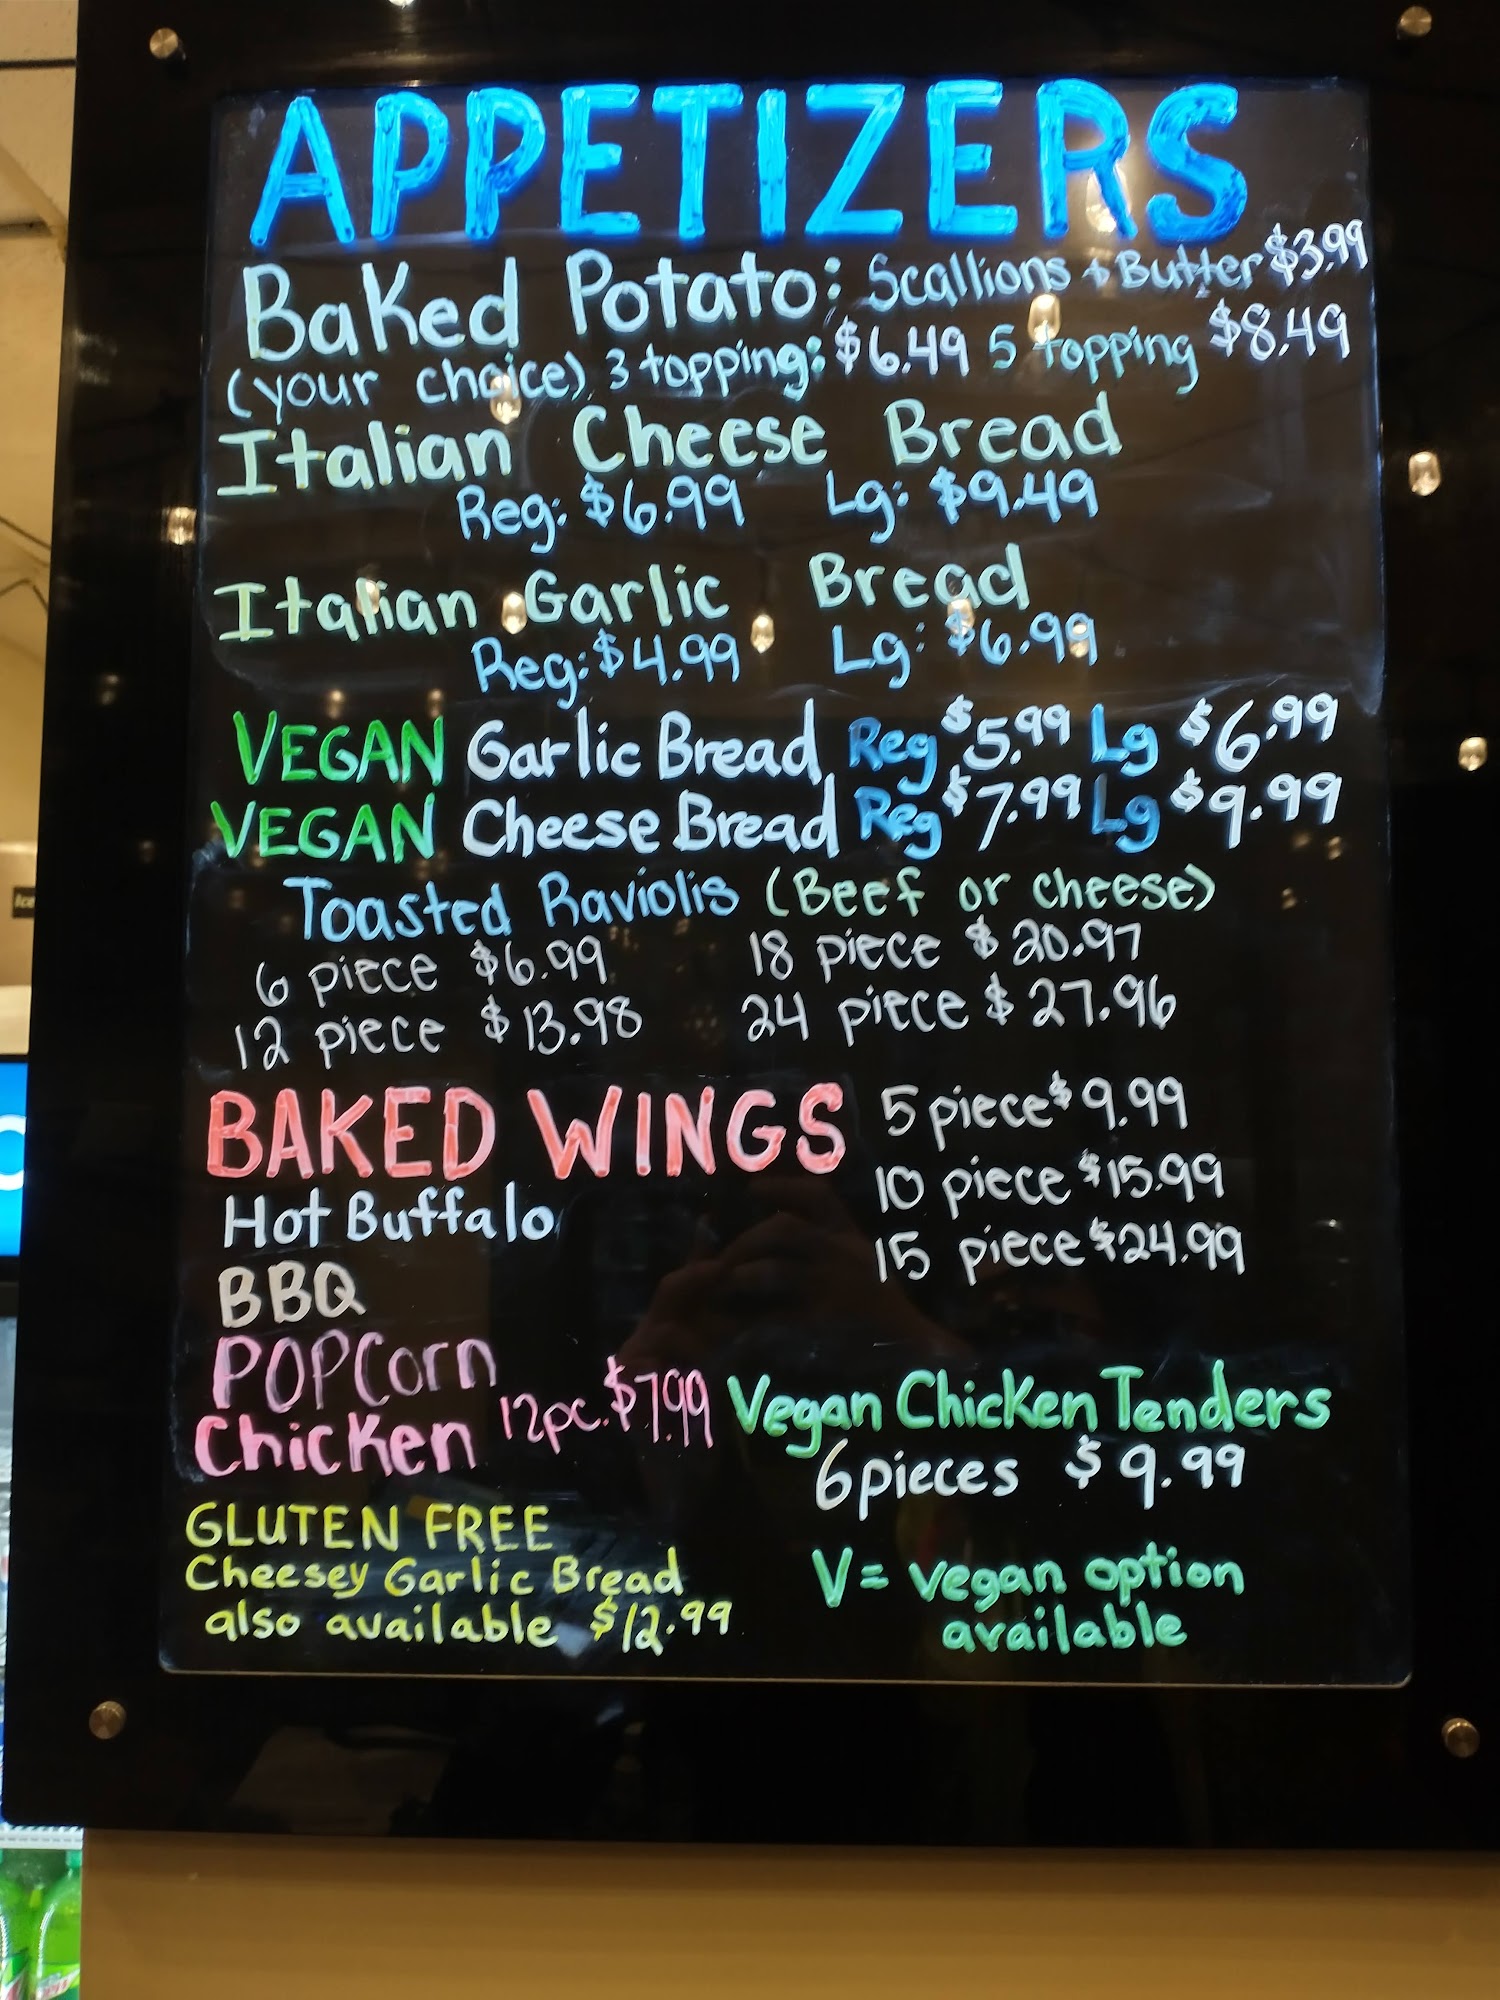 APPETIZERS
Baked Potato: Scallions + Butter $3.99
(your choice) 3 topping: $6.49 5 topping $8.49
Italian Cheese Bread
Reg: $6.99 Lg: $9.49
Italian Garlic Bread
Reg: $4.99 Lg: $6.99
VEGAN Garlic Bread Reg $5.99 Lg $6.99
VEGAN Cheese Bread Reg $7.99 Lg $9.99
Toasted Raviolis (Beef or cheese)
6 piece $6.99 18 piece $20.97
12 piece $13.98 24 piece $27.96
BAKED WINGS 5 piece $9.99
10 piece $15.99
Hot Buffalo
15 piece $24.99
BBQ
POPCorn
Chicken 12pc. $7.99
Vegan Chicken Tenders
6 pieces $9.99
GLUTEN FREE
Cheesey Garlic Bread
also available $12.99
V= vegan option
available